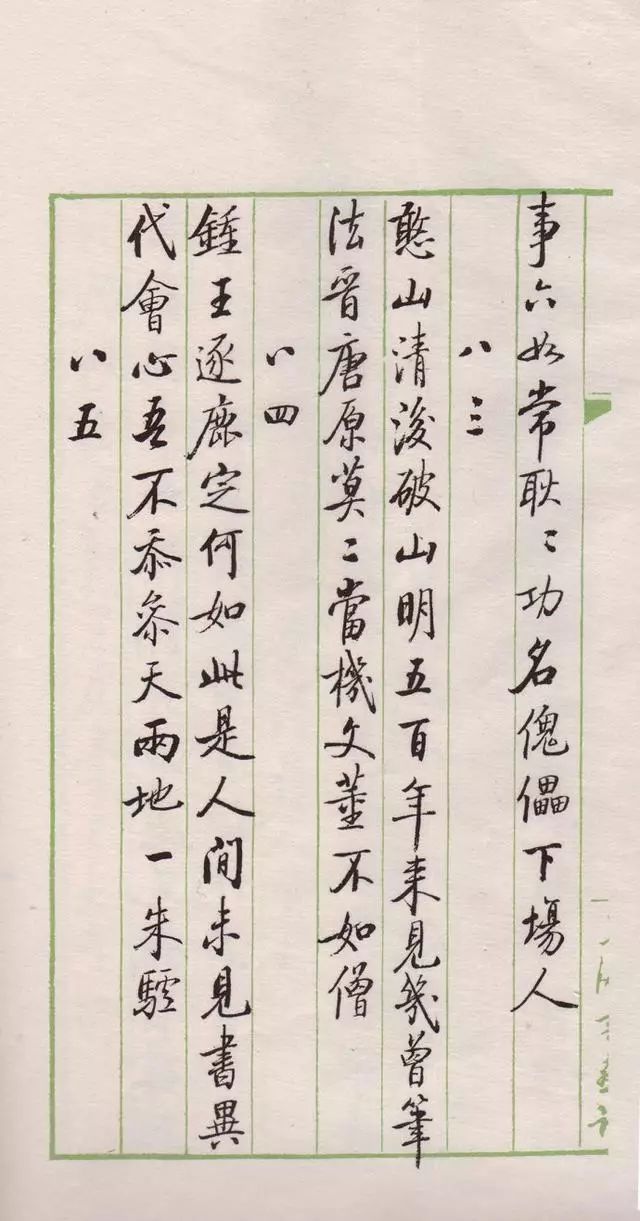 事六如常耿〻功名傀儡下場人
八三
憨山清後破山明五百年来見幾曾筆
法晉唐原莫二當機文董不如僧
八四
鍾王逐鹿定何如此是人間未見書異
代會心吾不忝參天兩地一朱驢
八五